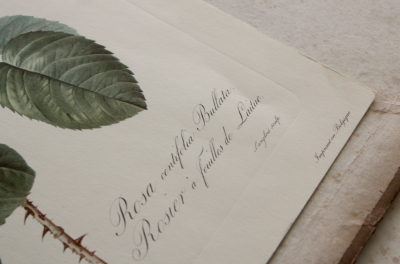 Rosa centifolia Bullata
Rosier à feuilles de Laitue.
Langlois sculp.
Imprimé en Belgique